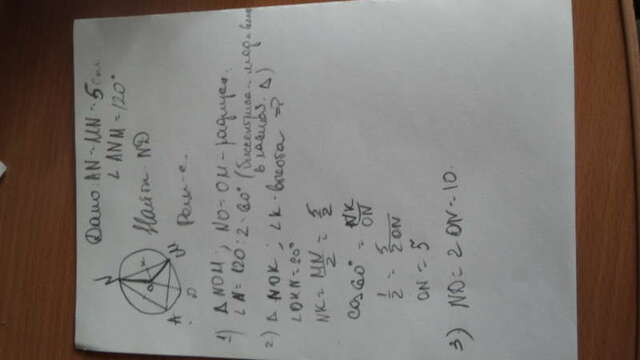 Дано: AN = MN = 5 см.
∠ANM = 120°
Найти: ND
Реш-е.
N
K
O
A
M
D
1) Δ NOM, NO = OM - радиусы.
∠N = 120 : 2 = 60° (биссектриса = мед = выс
в равноб. Δ)
2) Δ NOK, ∠K - высота ⇒
∠OKN = 90°
NK = MN/2 = 5/2
cos 60° = NK/ON
1/2 = 5/2ON
ON = 5
3) ND = 2 ON = 10.